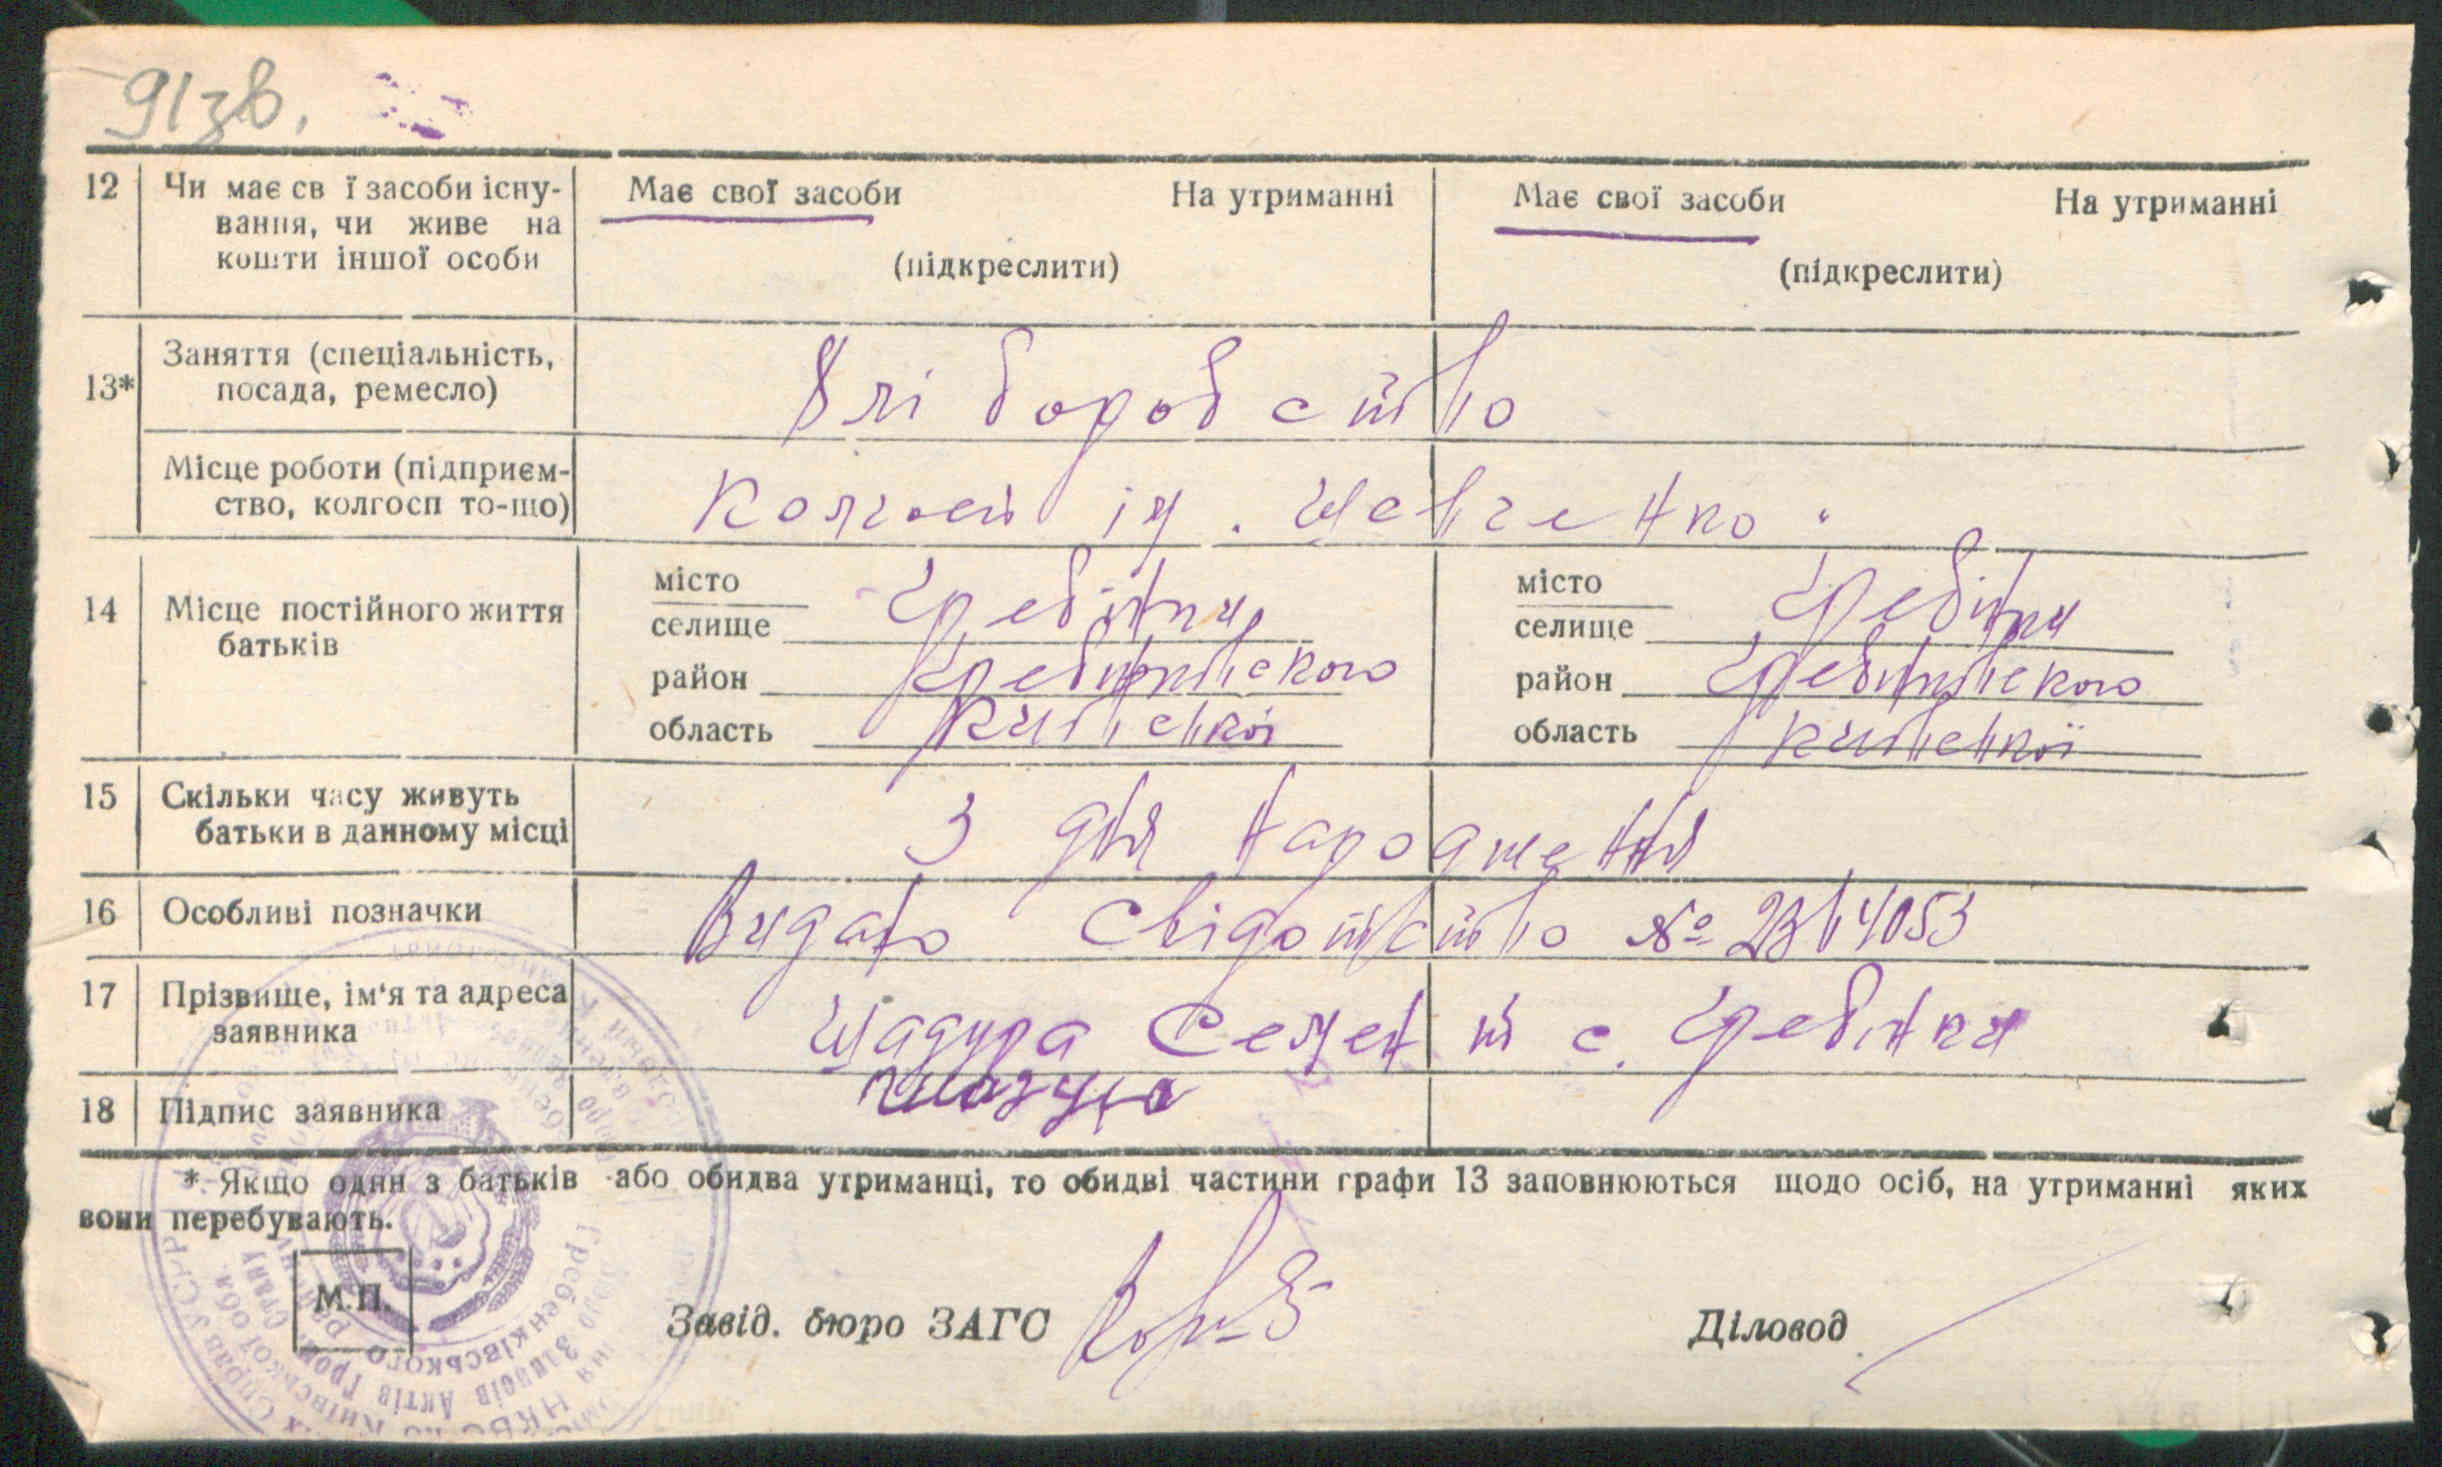 91зв.
12 Чи має св ї засоби існу- Має свої засоби На утриманні Має свої засоби На утриманні
вання, чи живе на
кошти іншої особи (підкреслити) (підкреслити)
Заняття (спеціальність, Хліборобство
13* посада, ремесло)
Місце роботи (підприєм- Колгосп ім. Шевченко
ство, колгосп то-що)
місто Гребінки місто Гребінки
14 Місце постійного життя селище селище
батьків
район Гребінківського район Гребінківського
область Київської область Київської
15 Скільки часу живуть З дня народження
батьки в данному місці
16 Особливі позначки Видано свідотство №
17 Прізвище, ім'я та адреса Шадура Семен с. Гребінки
заявника
18 Підпис заявника
* Якщо один з батьків або обидва утриманці, то обидві частини графи 13 заповнюються щодо осіб, на утриманні яких
вони перебувають.
М.П.
Завід. бюро ЗАГС Діловод
Гребенківського
Записів Актів Гром. Стану
Київської обл.
Справ УСРР